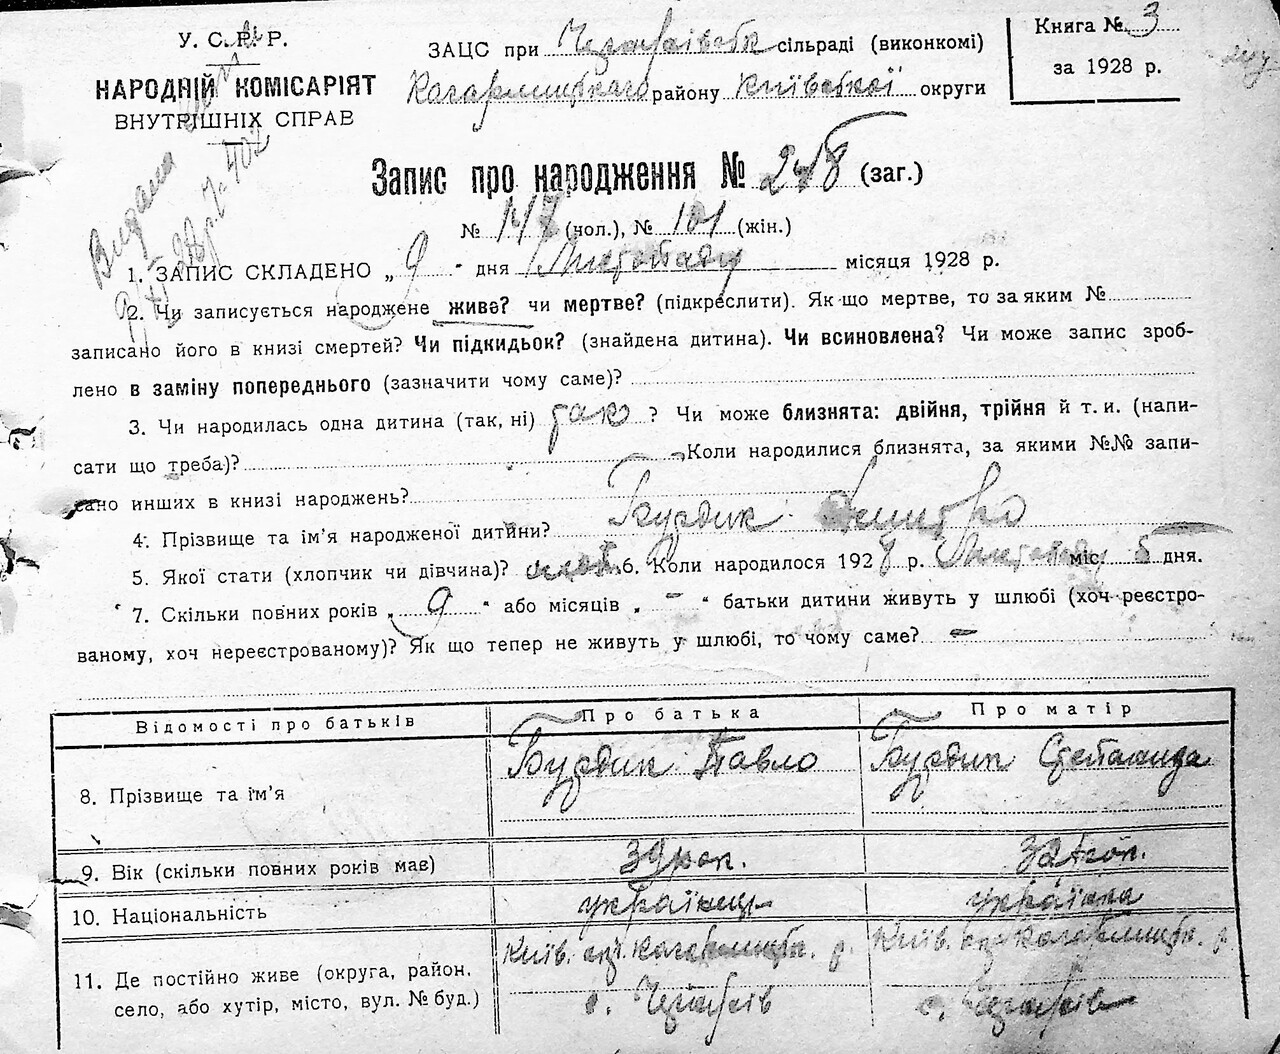 У. С. Р. Р.
НАРОДНІЙ КОМІСАРІЯТ
ВНУТРІШНІХ СПРАВ
ЗАЦС при сільраді (виконкомі)
Кагарлицького району Київської округи
Книга № 3
за 1928 р.
Видана
Запис про народження № (заг.)
№ (чол.), № 101 (жін.)
1. ЗАПИС СКЛАДЕНО „ 9 " дня Листопаду місяця 1928 р.
2. Чи записується народжене живе? чи мертве? (підкреслити). Як-що мертве, то за яким №
записано його в книзі смертей? Чи підкидьок? (знайдена дитина). Чи всиновлена? Чи може запис зроб-
лено в заміну попереднього (зазначити чому саме)?
3. Чи народилась одна дитина (так, ні) так? Чи може близнята: двійня, трійня й т. и. (напи-
сати що треба)? Коли народилися близнята, за якими №№ запи-
сано инших в книзі народжень?
4. Прізвище та ім'я народженої дитини? Бурдик Дмитро
5. Якої стати (хлопчик чи дівчина)? 6. Коли народилося 1928 р. Листопаду міс. 5 дня.
7. Скільки повних років „ 9 " або місяців „ – " батьки дитини живуть у шлюбі (хоч реєстро-
ваному, хоч нереєстрованому)? Як що тепер не живуть у шлюбі, то чому саме? –
Відомості про батьків Про батька Про матір
8. Прізвище та ім'я Бурдик Павло Бурдик Степанида
9. Вік (скільки повних років має)
10. Національність українець українка
11. Де постійно живе (округа, район, село, або хутір, місто, вул. № буд.) Київ. окр. Кагарлицьк. р. Київ. окр. Кагарлицьк. р.